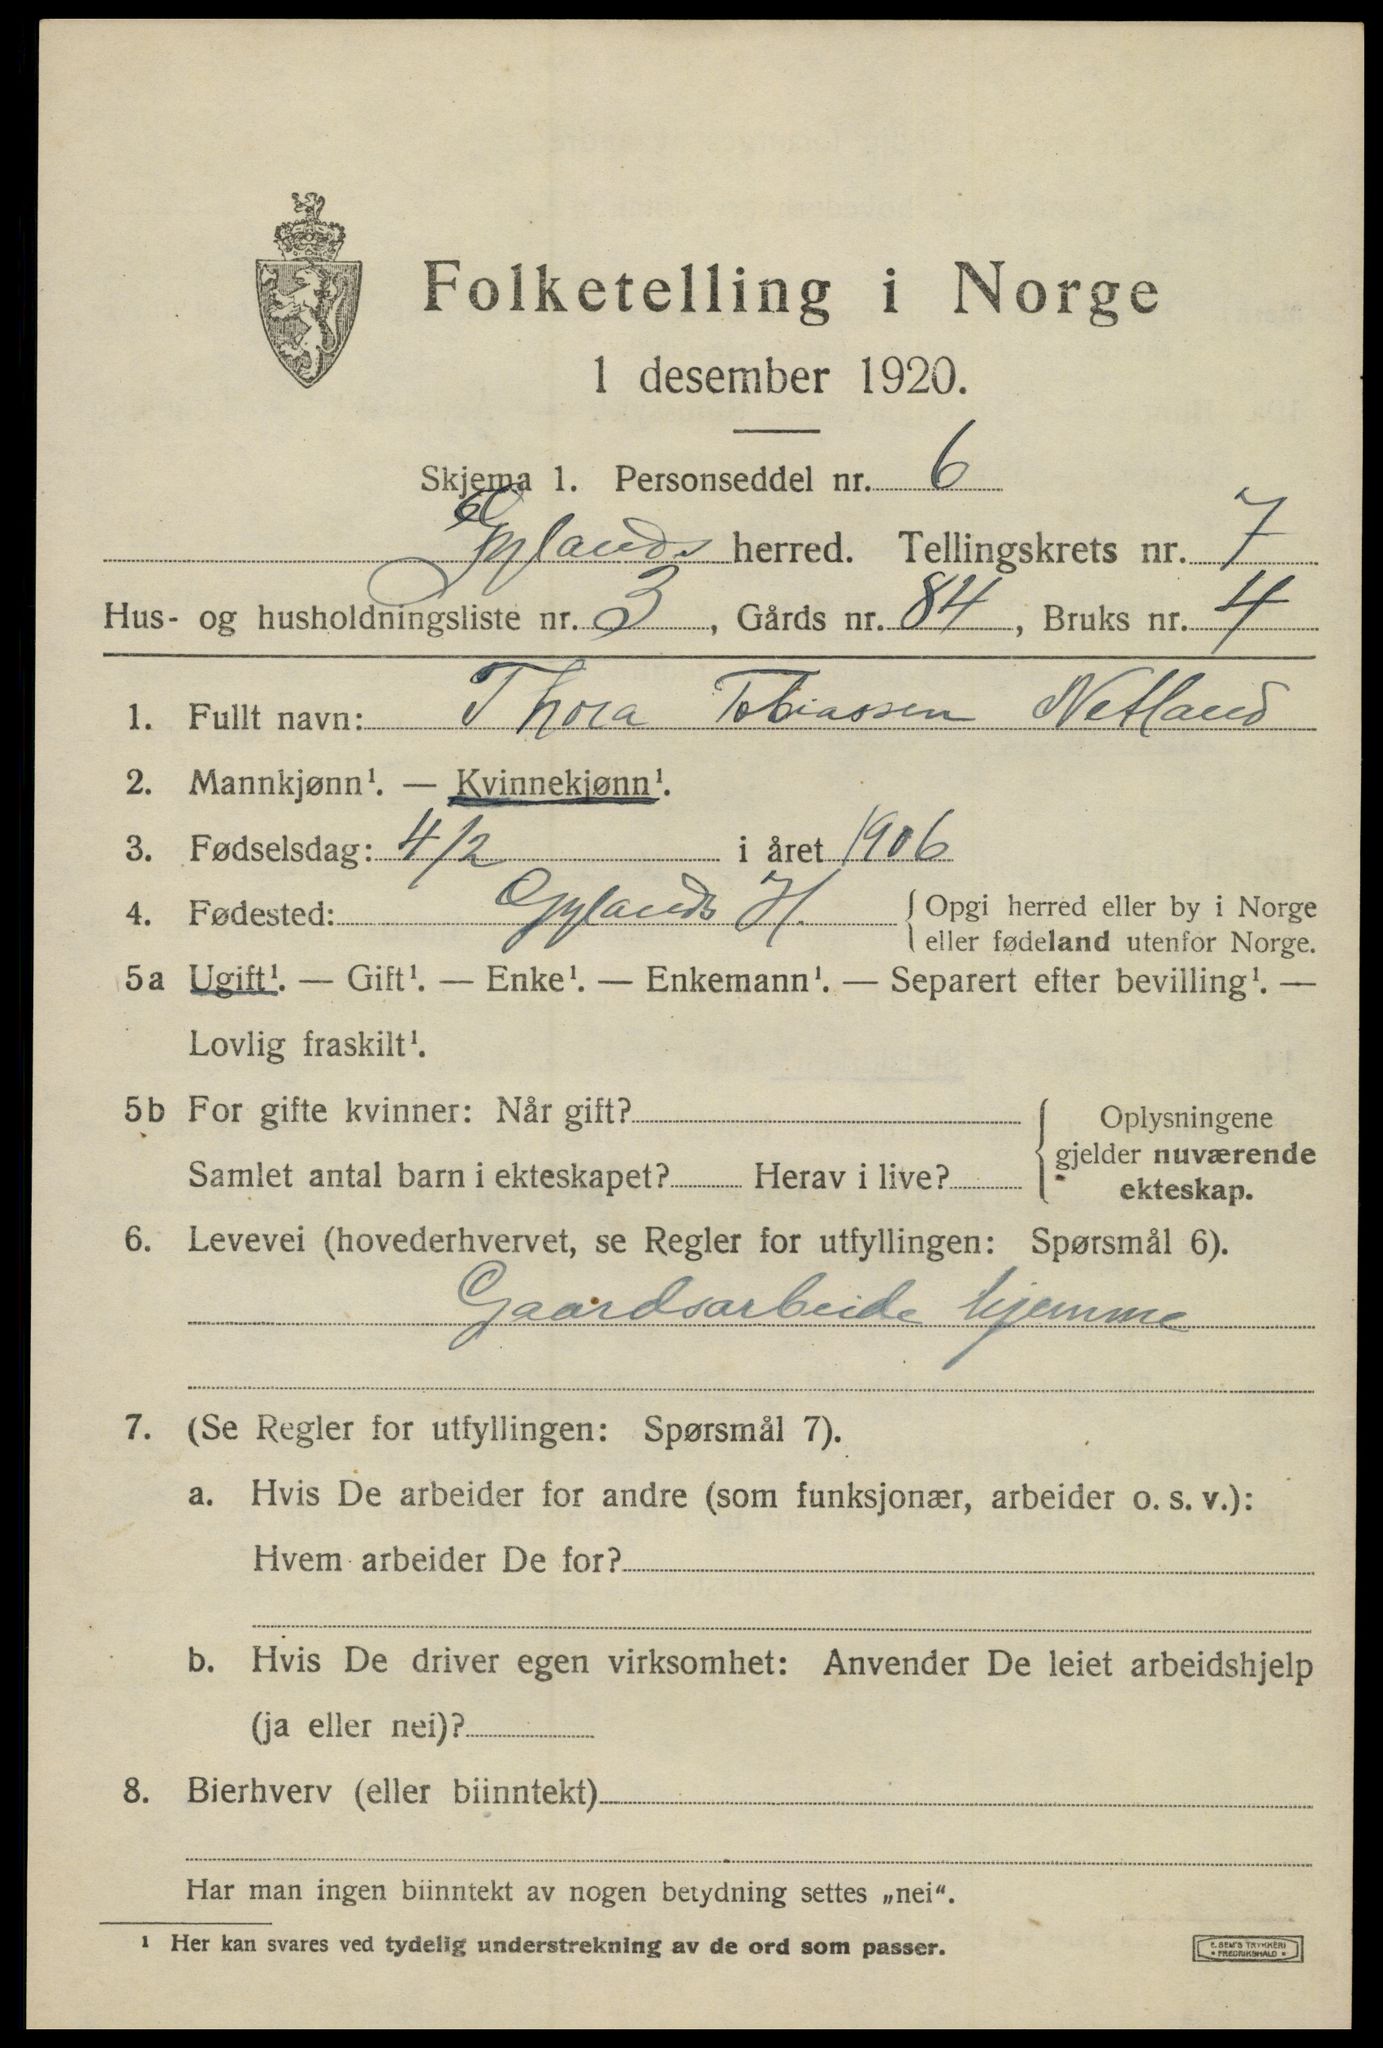 Folketelling i Norge
1 desember 1920.
Skjema 1. Personseddel nr. 6
Gylands herred. Tellingskrets nr. 7
Hus- og husholdningsliste nr. 3, Gårds nr. 84, Bruks nr. 4
1. Fullt navn: Thora Tobiassen Netland
2. Mannkjønn¹. — Kvinnekjønn¹.
3. Fødselsdag: 4/2 i året 1906
4. Fødested: Gylands H. { Opgi herred eller by i Norge
eller fødeland utenfor Norge.
5a Ugift¹. — Gift¹. — Enke¹. — Enkemann¹. — Separert efter bevilling¹. —
Lovlig fraskilt¹.
5b For gifte kvinner: Når gift?
Samlet antal barn i ekteskapet? Herav i live?
Oplysningene
gjelder nuværende
ekteskap.
6. Levevei (hovederhvervet, se Regler for utfyllingen: Spørsmål 6).
Gaardsarbeide hjemme
7. (Se Regler for utfyllingen: Spørsmål 7).
a. Hvis De arbeider for andre (som funksjonær, arbeider o. s. v.):
Hvem arbeider De for?
b. Hvis De driver egen virksomhet: Anvender De leiet arbeidshjelp
(ja eller nei)?
8. Bierhverv (eller biinntekt)
Har man ingen biinntekt av nogen betydning settes „nei“.
¹ Her kan svares ved tydelig understrekning av de ord som passer.
E. SEM'S TRYKKERI
• FREDRIKSHALD •